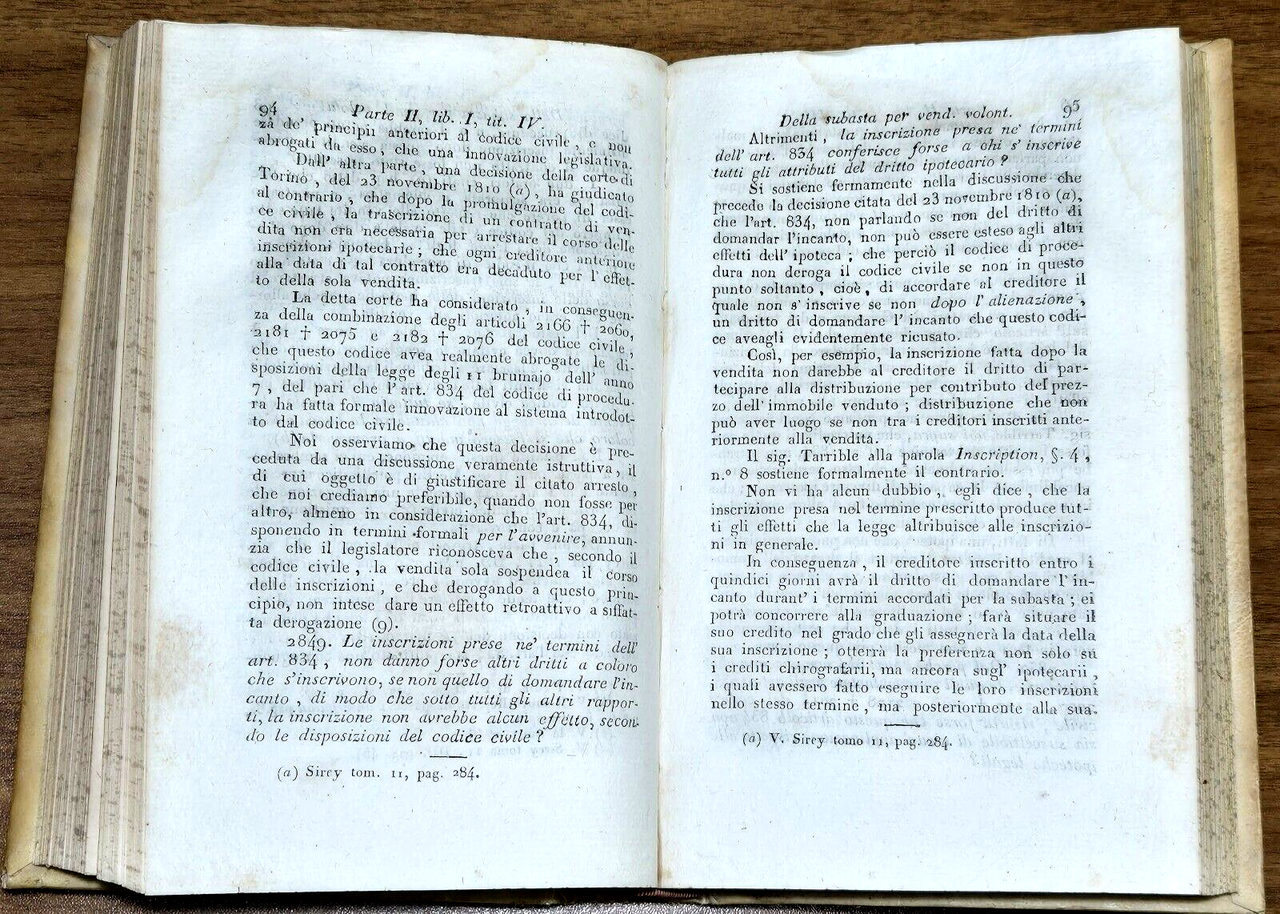 94 Parte II, lib. I, tit. IV.
za de' principii anteriori al codice civile, e non
abrogati da esso, che una innovazione legislativa.
Dall' altra parte, una decisione della corte di
Torino, del 23 novembre 1810 (a), ha giudicato
al contrario, che dopo la promulgazione del codi-
ce civile, la trascrizione di un contratto di ven-
dita non era necessaria per arrestare il corso delle
inscrizioni ipotecarie; che ogni creditore anteriore
alla data di tal contratto era decaduto per l'effet-
to della sola vendita.
La detta corte ha considerato, in conseguen-
za della combinazione degli articoli 2166 † 2060,
2181 † 2075 e 2182 † 2076 del codice civile,
che questo codice avea realmente abrogate le di-
sposizioni della legge degli 11 brumajo dell' anno
7, del pari che l'art. 834 del codice di procedu-
ra ha fatta formale innovazione al sistema introdot-
to dal codice civile.
Noi osserviamo che questa decisione è pre-
ceduta da una discussione veramente istruttiva, il
di cui oggetto è di giustificare il citato arresto,
che noi crediamo preferibile, quando non fosse per
altro, almeno in considerazione che l'art. 834, di-
sponendo in termini formali per l'avvenire, annun-
zia che il legislatore riconosceva che, secondo il
codice civile, la vendita sola sospendea il corso
delle inscrizioni, e che derogando a questo prin-
cipio, non intese dare un effetto retroattivo a siffat-
ta derogazione (9).
2849. Le inscrizioni prese ne' termini dell'
art. 834, non danno forse altri dritti a coloro
che s'inscrivono, se non quello di domandare l'in-
canto, di modo che sotto tutti gli altri rappor-
ti, la inscrizione non avrebbe alcun effetto, secon-
do le disposizioni del codice civile?
(a) Sirey tom. 11, pag. 284.
Della subasta per vend. volont. 95
Altrimenti, la inscrizione presa ne' termini
dell' art. 834 conferisce forse a chi s'inscrive
tutti gli attributi del dritto ipotecario?
Si sostiene fermamente nella discussione che
precede la decisione citata del 23 novembre 1810 (a),
che l'art. 834, non parlando se non del dritto di
domandar l'incanto, non può essere esteso agli altri
effetti dell' ipoteca; che perciò il codice di proce-
dura non deroga il codice civile se non in questo
punto soltanto, cioè, di accordare al creditore il
quale non s'inscrive se non dopo l'alienazione,
un dritto di domandare l'incanto che questo codi-
ce aveagli evidentemente ricusato.
Così, per esempio, la inscrizione fatta dopo la
vendita non darebbe al creditore il dritto di par-
tecipare alla distribuzione per contributo del prez-
zo dell'immobile venduto; distribuzione che non
può aver luogo se non tra i creditori inscritti ante-
riormente alla vendita.
Il sig. Tarrible alla parola Inscription, §. 4,
n.º 8 sostiene formalmente il contrario.
Non vi ha alcun dubbio, egli dice, che la
inscrizione presa nel termine prescritto produce tut-
ti gli effetti che la legge altribuisce alle inscrizio-
ni in generale.
In conseguenza, il creditore inscritto entro i
quindici giorni avrà il dritto di domandare l'in-
canto durant' i termini accordati per la subasta; ei
potrà concorrere alla graduazione; farà situare il
suo credito nel grado che gli assegnerà la data della
sua inscrizione; otterrà la preferenza non solo su
i crediti chirografarii, ma ancora sugl' ipotecarii,
i quali avessero fatto eseguire le loro inscrizioni
nello stesso termine, ma posteriormente alla sua.
(a) V. Sirey tomo 11, pag. 284.